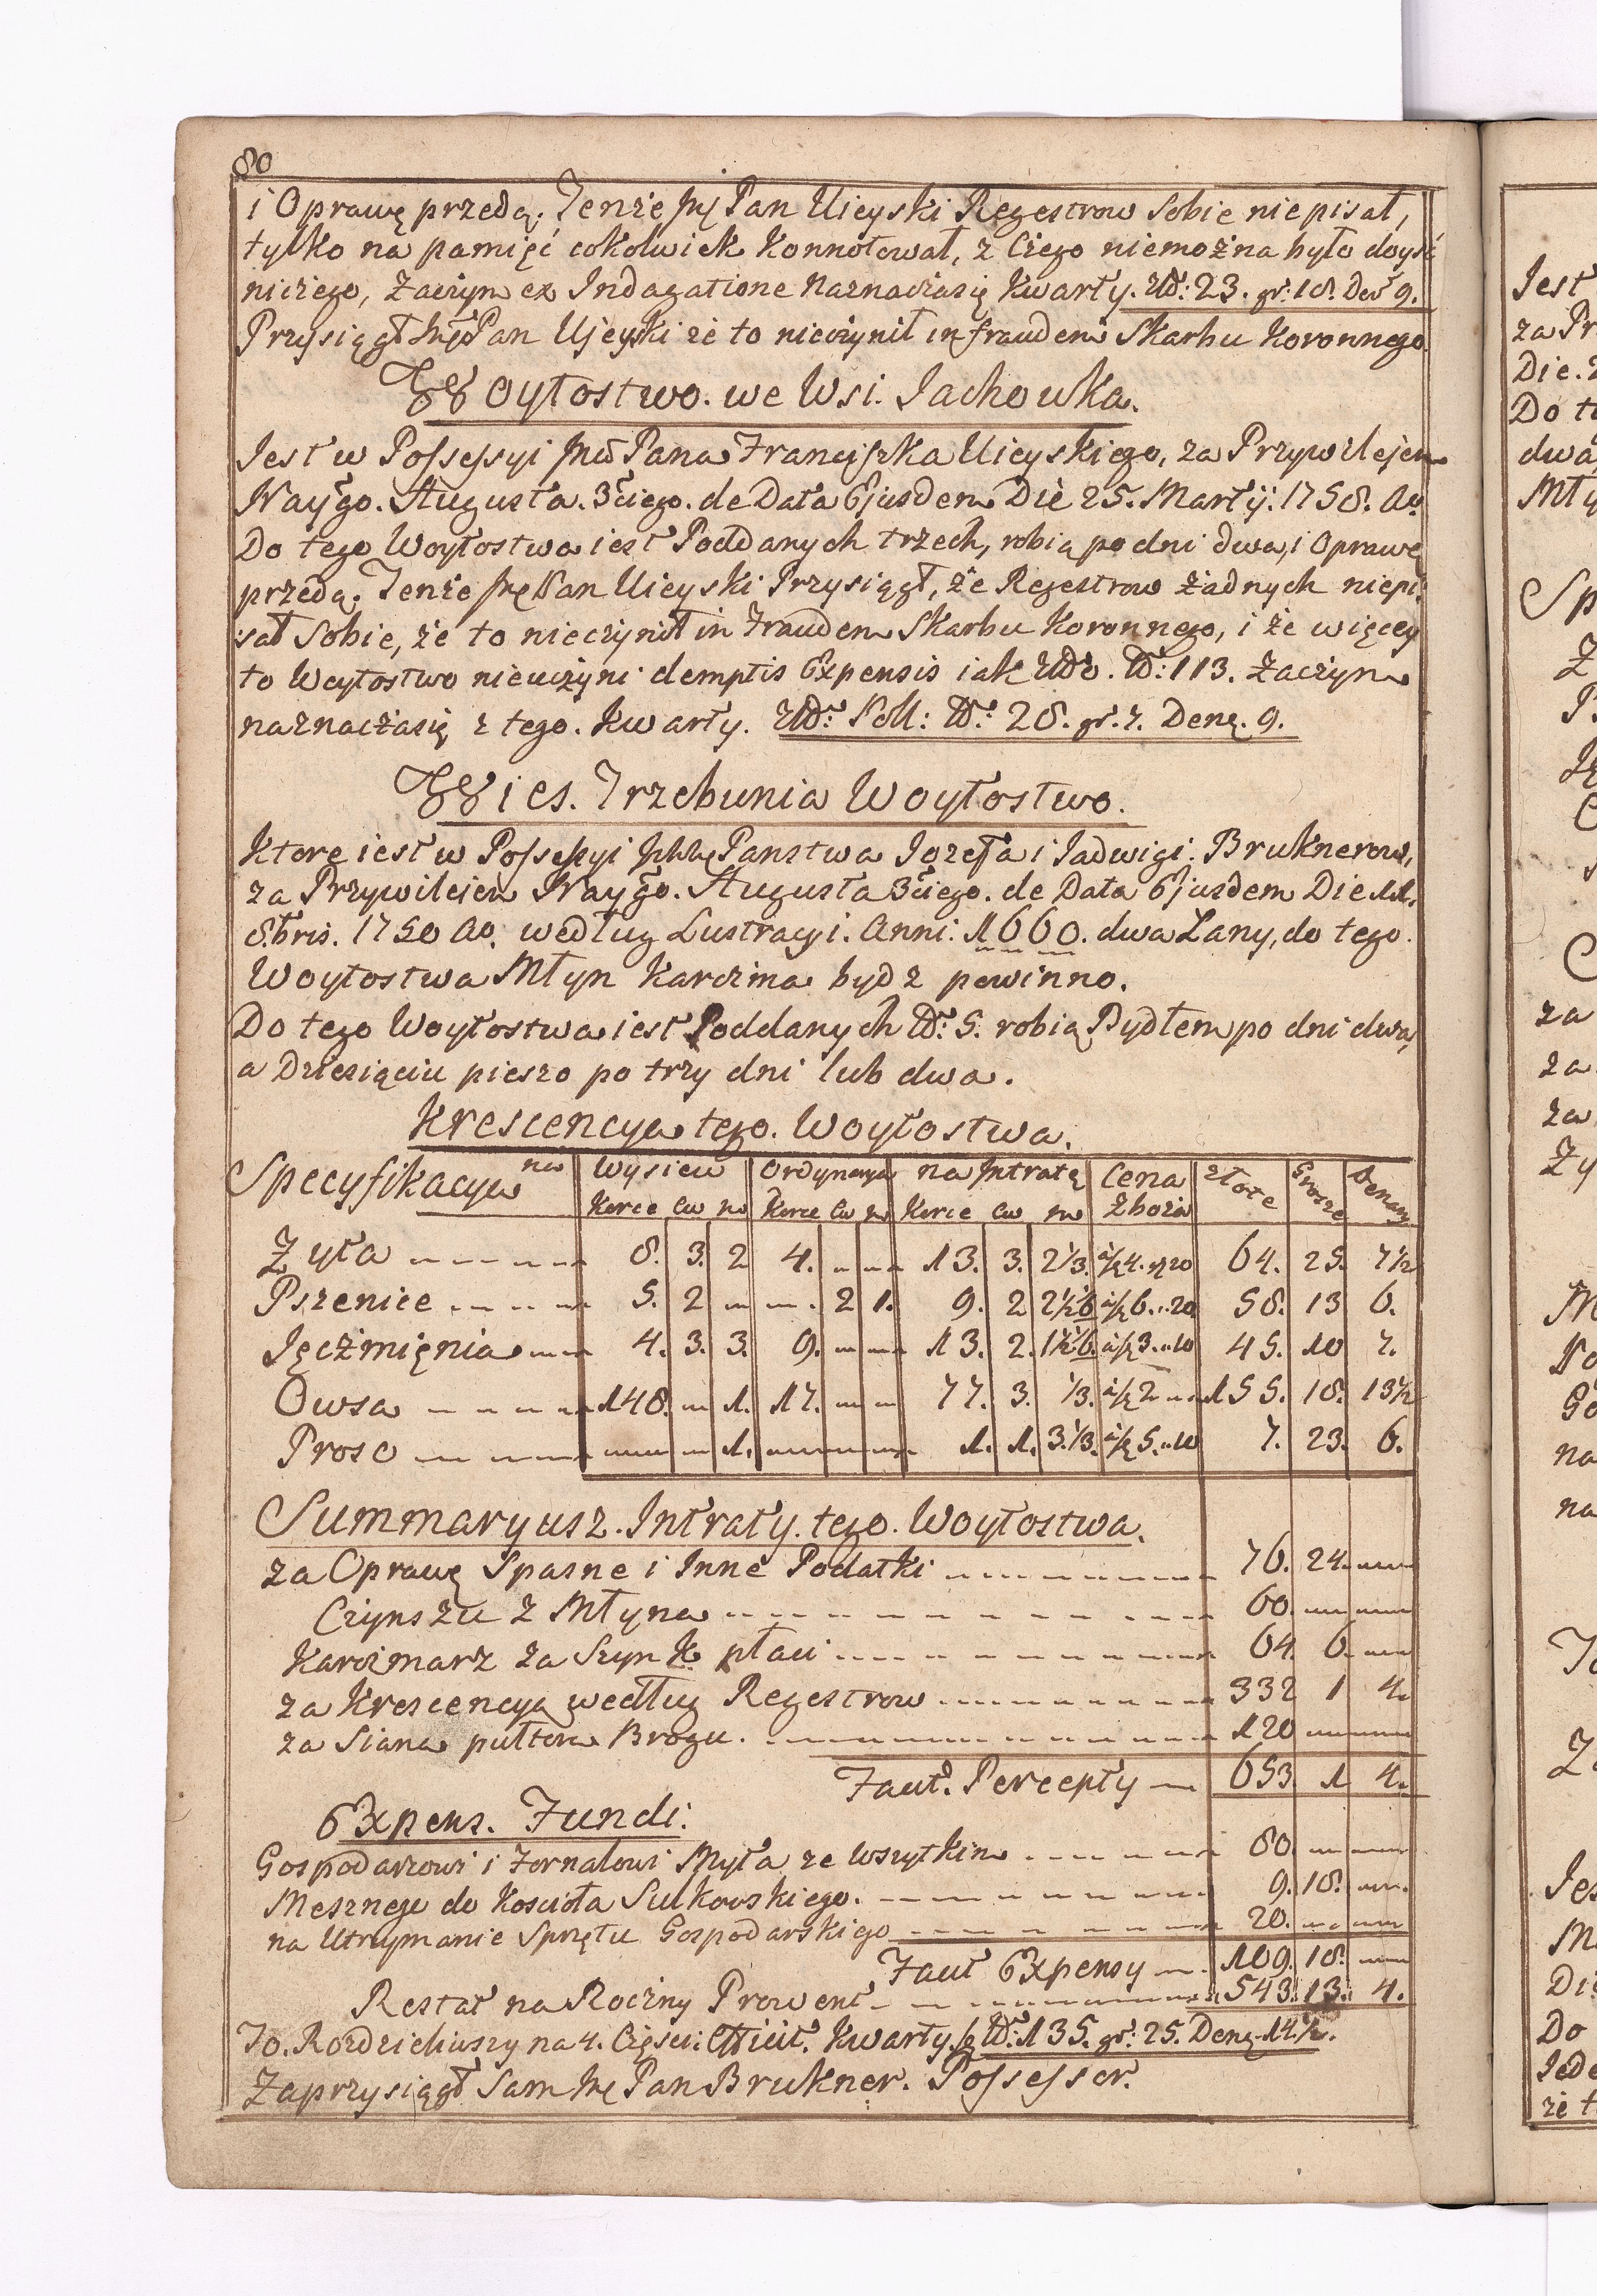 80
i Oprawę przedą. Tenże Jmę Pan Uieyski Regestrow sobie niepisał,
tylko na pamięć cokolwiek konnotował, z czego niemożna było doyść
niczego, zaczym ex Indagatione naznaczasię kwarty. Złł: 23. gr: 18. Den 9.
Przysiągł Jmę Pan Ujeyski że to nieczynił in fraudem Skarbu Koronnego
Woytostwo. we Wsi. Jachowka.
Jest w Possessyi Jmć Pana Franciszka Uieyskiego, za Przywilejem
Naygo. Augusta. 3ciego. de Data Ejusdem Die 25. Martij. 1758. Ao
Do tego Woytostwa iest Poddanych trzech, robią po dni dwa, i Oprawę
przedą. Tenże Jmę Pan Uieyski Przysiągł, że Regestrow żadnych niepi
sał sobie, że to nieczynił in Fraudem Skarbu Koronnego, i że więcey
to Woytostwo nieuczyni demptis Expensis iak Złło. Nr: 113. zaczym
naznaczasię z tego. kwarty. Złł: Poll: Nr: 28. gr. 7. Denę. 9.
Wies. Trzebunia Woytostwo.
Ktore iest w Possessyi Państwa Jozefa i Jadwigi. Bruknerow,
za Przywilejem Naygo. Augusta 3ciego. de Data Ejusdem Die 11.
8bris. 1750 Ao. według Lustracyi. Anni. 1660. dwa Łany, do tego.
Woytostwa Młyn karczma bydz powinno.
Do tego Woytostwa iest Poddanych Nr: 5. robią Bydłem po dni dwa,
a Dziesięciu pieszo po trzy dni lub dwa.
Krescencya tego. Woytostwa.
Specyfikacya na Wysiew Ordynarya na Intratę Cena Złote Grosze Denary
Korce Cw no Korce Cw no Korce Cw no Zboża
Zyta 8. 3. 2 4. 13. 3. 2 1/3. à f 4. gr 20 64. 25. 7 1/2
Pszenice 5. 2 2 1. 9. 2 2 1/2 1/6 à f 6. 20 58. 13 6.
Jęczmięnia 4. 3. 3. 9. 13. 2. 1 1/2 1/6. à f 3. 10 45. 10 7.
Owsa 148. 1. 17. 77. 3. 1/3. à f 2 155. 18. 13 1/2
Proso 1. 1. 1. 3. 1/3. à f 5. 10 7. 23. 6.
Summaryusz. Intraty. tego. Woytostwa.
za Oprawę Spasne i Inne Podatki 76. 24.
Czynszu z Młyna 60.
Karczmarz za Szynk płaci 64. 6.
za Krescencyą według Regestrow 332 1 4.
za Siana pułtora Brogu. 120
Faut. Percepty 653. 1 4.
Expens. Fundi.
Gospodarzowi i Fornalowi Myta ze wszytkim 80.
Mesznego do Kościoła Sulkowskiego. 9. 18.
na Utrzymanie Sprzętu Gospodarskiego 20.
Faut Expensy 109. 18.
Restat na Roczny Prowent 543. 13. 4.
To. Rozdzieliwszy na 4. Częsci. Efficit. Kwarty. f Nr: 135. gr: 25. Denę. 14 1/2.
Zaprzysiągł Sam Jmę Pan Brukner. Possessor.